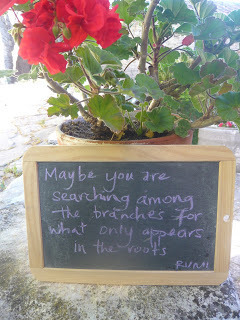 Maybe you are
searching among
the branches for
what only appears
in the roots
RUMI